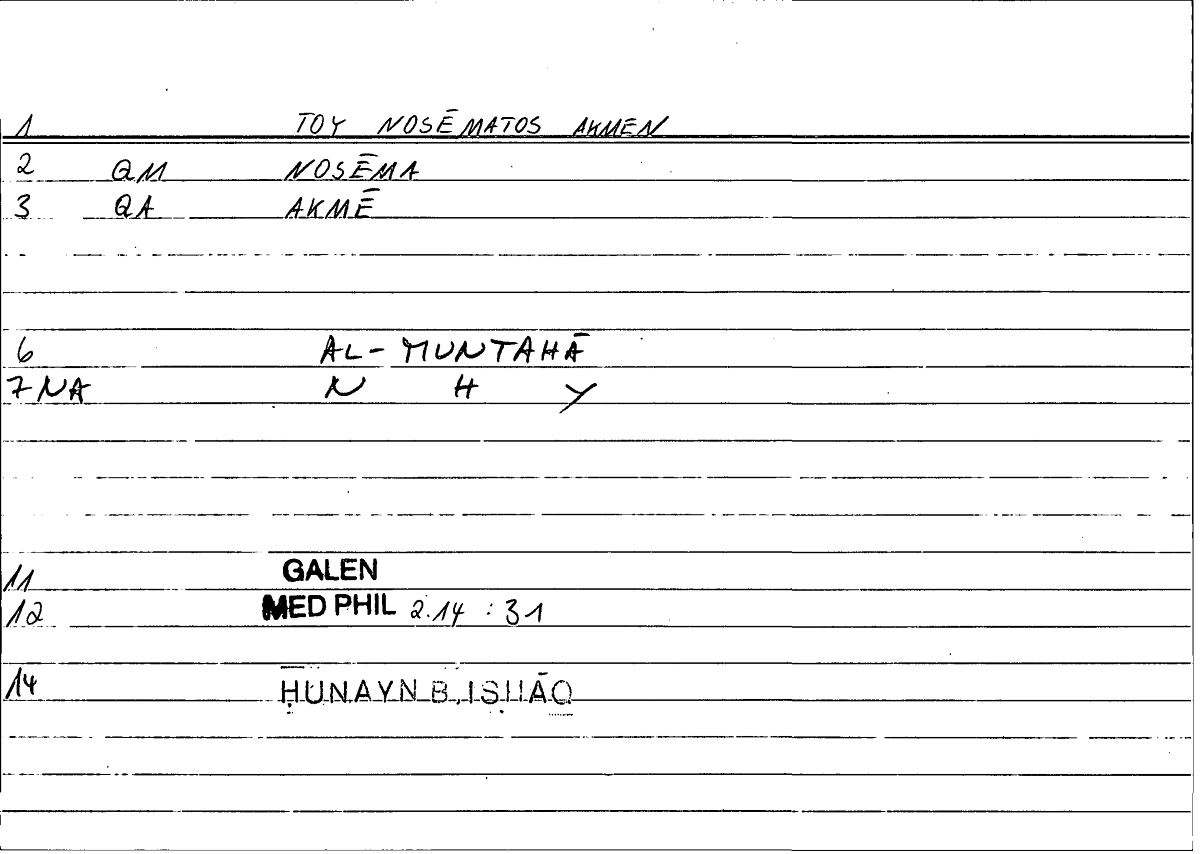 1 TOY NOSĒMATOS AKMEN
2 QM NOSĒMA
3 QA AKMĒ
6 AL-MUNTAHĀ
7 NA N H Y
11 GALEN
12 MED PHIL 2.14 : 31
14 ḤUNAYN B. ISḤĀQ